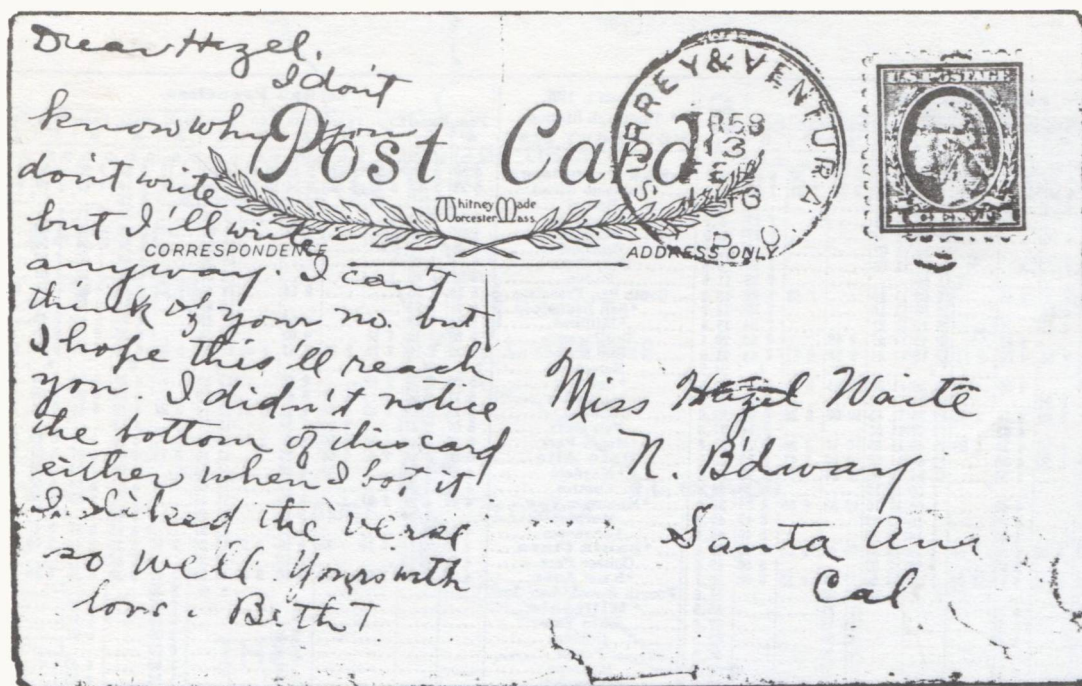 Dear Hazel.
I don't
know why you
don't write
but I'll write
anyway. I can't
think of your no. but
I hope this'll reach
you. I didn't notice
the bottom of this card
either when I bo't it
I liked the verse
so well Yours with
love. Beth T
Post Card
Whitney Made
Worcester Mass.
CORRESPONDENCE
ADDRESS ONLY
SURREY & VENTURA
TR 58
13
FE
R P O
U.S. POSTAGE
1 CENT 1
Miss Hazel Waite
N. B'dway
Santa Ana
Cal